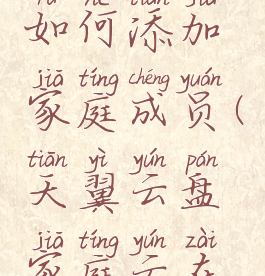 如何添加
jiā tíng chéng yuán
家庭成员(
tiān yì yún pán
天翼云盘
jiā tíng yún zài
家庭云在